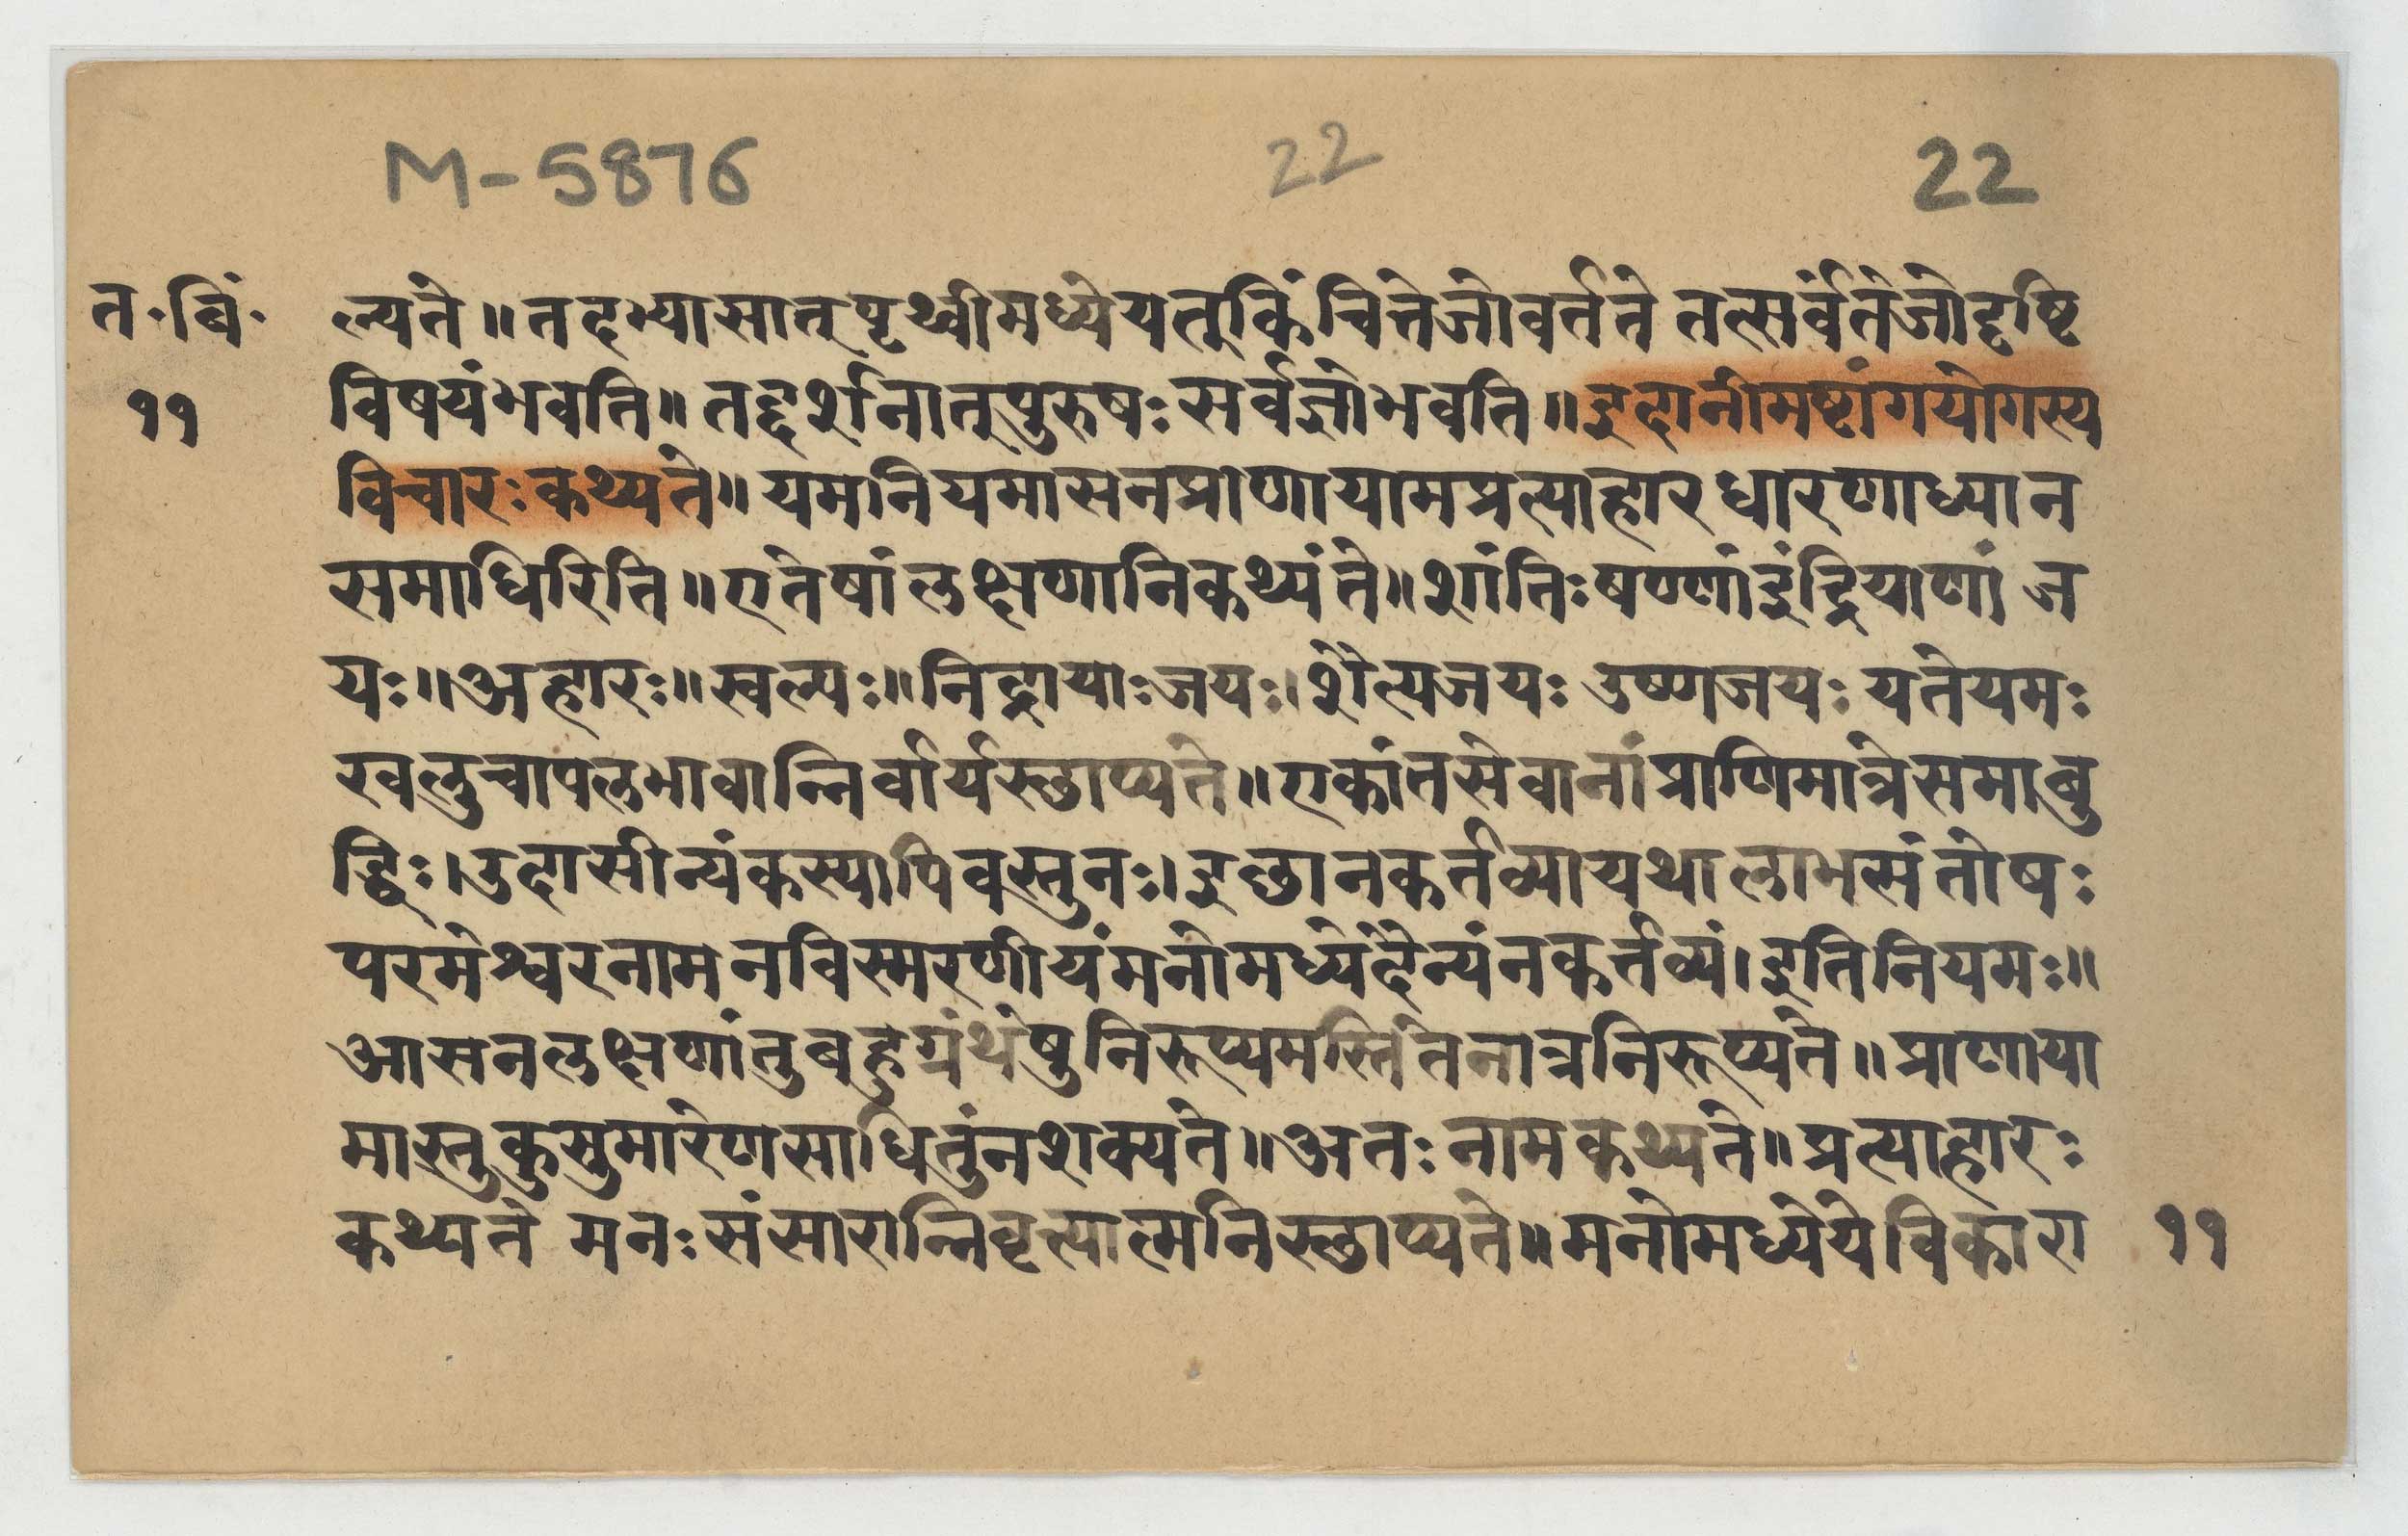 M-5876 22 22
त॰बिं॰ ल्यते॥तदभ्यासात्पृथ्वीमध्येयत्किंचित्तेजोवर्तते तत्सर्वंतेजोदृष्टि
११ विषयंभवति॥तद्दर्शनात्पुरुषःसर्वज्ञोभवति॥इदानीमष्टांगयोगस्य
विचारःकथ्यते॥यमनियमासनप्राणायामप्रत्याहारधारणाध्यान
समाधिरिति॥एतेषांलक्षणानिकथ्यंते॥शांतिःषण्णांइंद्रियाणां ज
यः॥अहारः॥स्वल्पः॥निद्रायाःजयः।शैत्यजयः उष्णजयः यतेयमः
खलुचापलभावान्निर्वार्यस्छाप्यते॥एकांतसेवानांप्राणिमात्रेसमाबु
द्धिः।उदासीन्यंकस्यापिवस्तुनः।इछानकर्तव्यायथालाभसंतोषः
परमेश्वरनामनविस्मरणीयंमनोमध्येदैन्यंनकर्तव्यं।इतिनियमः॥
आसनलक्षणांतुबहुग्रंथेषुनिरूप्यमस्तितेनात्रनिरूप्यते॥प्राणाया
मास्तुकुसुमारेणसाधितुंनशक्यते॥अतःनामकथ्यते॥प्रत्याहारः
कथ्यते मनःसंसारान्निवृत्यात्मनिस्छाप्यते॥मनोमध्येयेविकारा ११